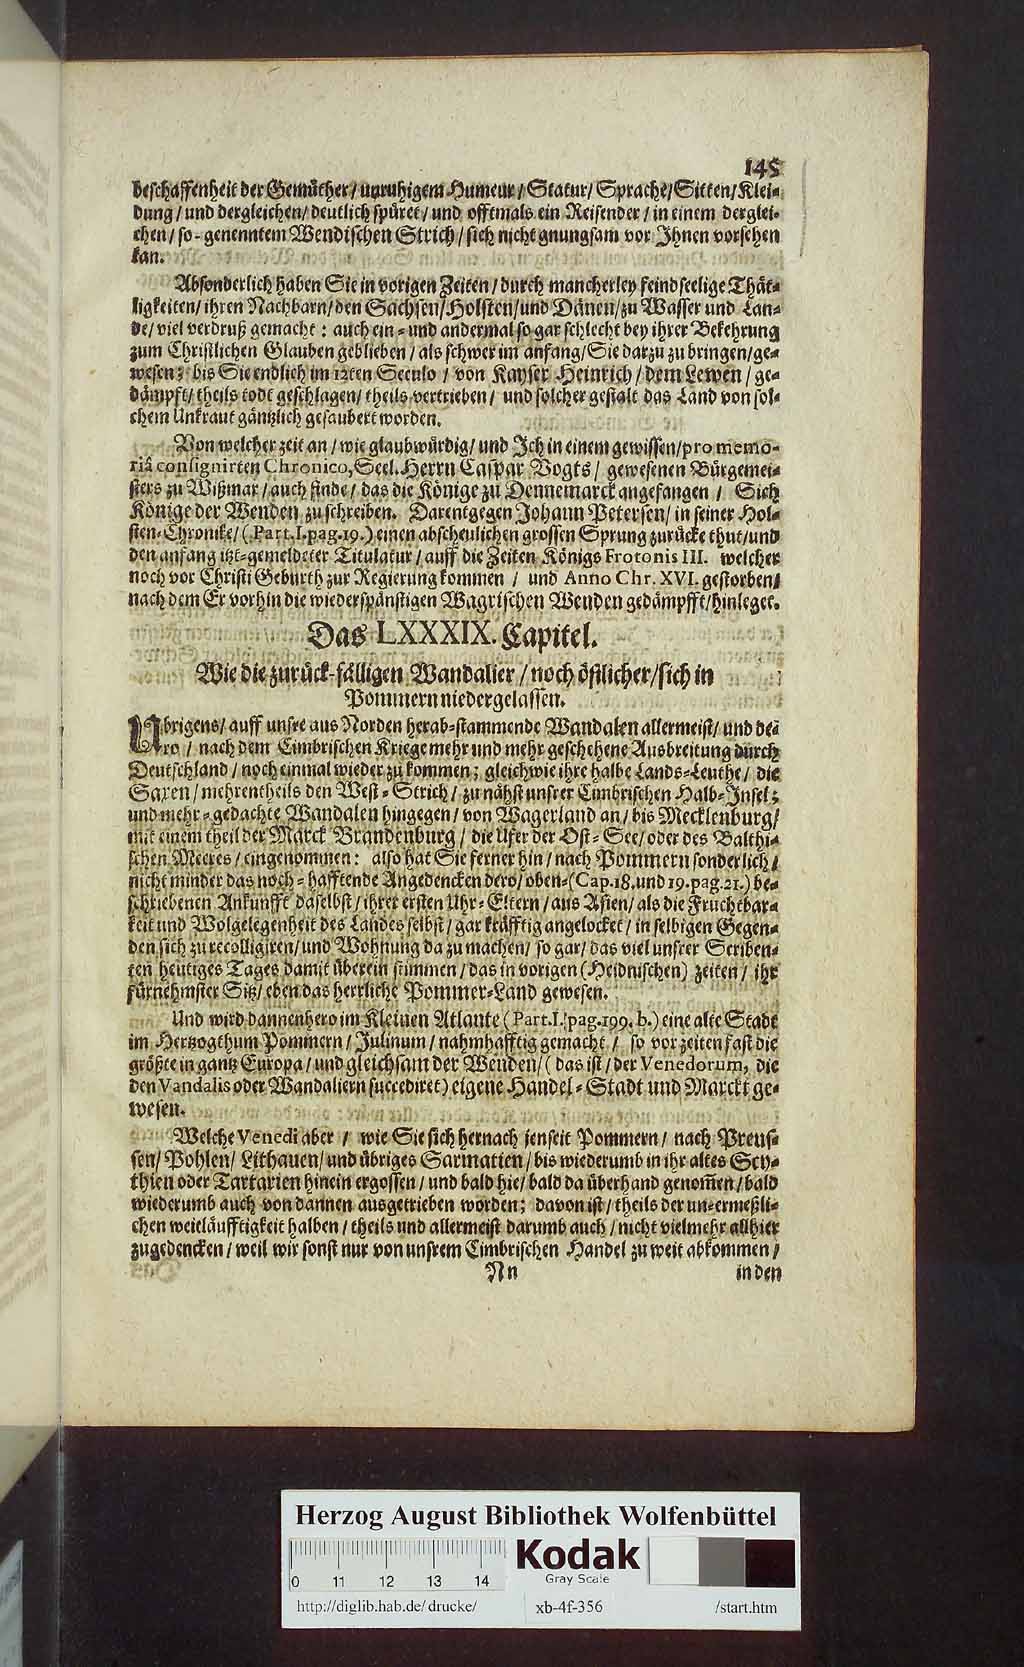 145
beschaffenheit der Gemüther / unruhigem Humeur / Statur / Sprache / Sitten / Klei-
dung / und dergleichen / deutlich spüret / und offtmals ein Reisender / in einem derglei-
chen / so-genenntem Wendischen Strich / sich nicht gnungsam vor Ihnen vorsehen
kan.
Absonderlich haben Sie in vorigen Zeiten / durch mancherley feindseelige Thät-
ligkeiten / ihren Nachbarn / den Sachsen / Holsten / und Dänen / zu Wasser und Lan-
de / viel verdruß gemacht : auch ein- und andermal so gar schlecht bey ihrer Bekehrung
zum Christlichen Glauben geblieben / als schwer im anfang / Sie darzu zu bringen / ge-
wesen; bis Sie endlich im 12ten Seculo / von Kayser Heinrich / dem Lewen / ge-
dämpft / theils todt geschlagen / theils vertrieben / und solcher gestalt das Land von sol-
chem Unkraut gäntzlich gesaubert worden.
Von welcher zeit an / wie glaubwürdig / und Ich in einem gewissen / pro memo-
riâ consignirten Chronico, Seel. Herrn Caspar Vogts / gewesenen Bürgemei-
sters zu Wißmar / auch finde / das die Könige zu Dennemarck angefangen / Sich
Könige der Wenden zu schreiben. Darentgegen Johann Petersen / in seiner Hol-
sten-Chronike / (Part. I. pag. 19.) einen abscheulichen grossen Sprung zurücke thut / und
den anfang itzt-gemeldeter Titulatur / auff die Zeiten Königs Frotonis III. welcher
noch vor Christi Geburth zur Regierung kommen / und Anno Chr. XVI. gestorben /
nach dem Er vorhin die wiederspänstigen Wagrischen Wenden gedämpfft / hinleget.
Das LXXXIX. Capitel.
Wie die zurück-fälligen Wandalier / noch östlicher / sich in
Pommern niedergelassen.
Ubrigens / auff unsre aus Norden herab-stammende Wandalen allermeist / und de-
ro / nach dem Cimbrischen Kriege mehr und mehr geschehene Ausbreitung durch
Deutschland / noch einmal wieder zu kommen; gleichwie ihre halbe Lands-Leuthe / die
Saxen / mehrentheils den West-Strich / zu nähst unsrer Cimbrischen Halb-Insel;
und mehr-gedachte Wandalen hingegen / von Wagerland an / bis Mecklenburg /
mit einem theil der Marck Brandenburg / die Ufer der Ost-See / oder des Balthi-
schen Meeres / eingenommen : also hat Sie ferner hin / nach Pommern sonderlich /
nicht minder das noch-hafftende Angedencken dero / oben-(Cap. 18. und 19. pag. 21.) be-
schriebenen Ankunfft daselbst / ihrer ersten Uhr-Eltern / aus Asien / als die Fruchtbar-
keit und Wolgelegenheit des Landes selbst / gar kräfftig angelocket / in selbigen Gegen-
den sich zu recolligiren / und Wohnung da zu machen / so gar / das viel unsrer Scriben-
ten heutiges Tages damit überein stimmen / das in vorigen (Heidnischen) zeiten / ihr
fürnehmster Sitz / eben das herrliche Pommer-Land gewesen.
Und wird dannenhero im Kleinen Atlante (Part. I. pag. 199. b.) eine alte Stadt
im Hertzogthum Pommern / Julinum / nahmhafftig gemacht / so vor zeiten fast die
größte in gantz Europa / und gleichsam der Wenden / (das ist / der Venedorum, die
den Vandalis oder Wandaliern succediret) eigene Handel-Stadt und Marckt ge-
wesen.
Welche Venedi aber / wie Sie sich hernach jenseit Pommern / nach Preus-
sen / Pohlen / Lithauen / und übriges Sarmatien / bis wiederumb in ihr altes Scy-
thien oder Tartarien hinein ergossen / und bald hie / bald da überhand genom̃en / bald
wiederumb auch von dannen ausgetrieben worden; davon ist / theils der un-ermeßli-
chen weitläufftigkeit halben / theils und allermeist darumb auch / nicht vielmehr allhier
zugedencken / weil wir sonst nur von unsrem Cimbrischen Handel zu weit abkommen /
Nn in den
Herzog August Bibliothek Wolfenbüttel
0 11 12 13 14
Kodak
Gray Scale
http://diglib.hab.de/drucke/ xb-4f-356 /start.htm